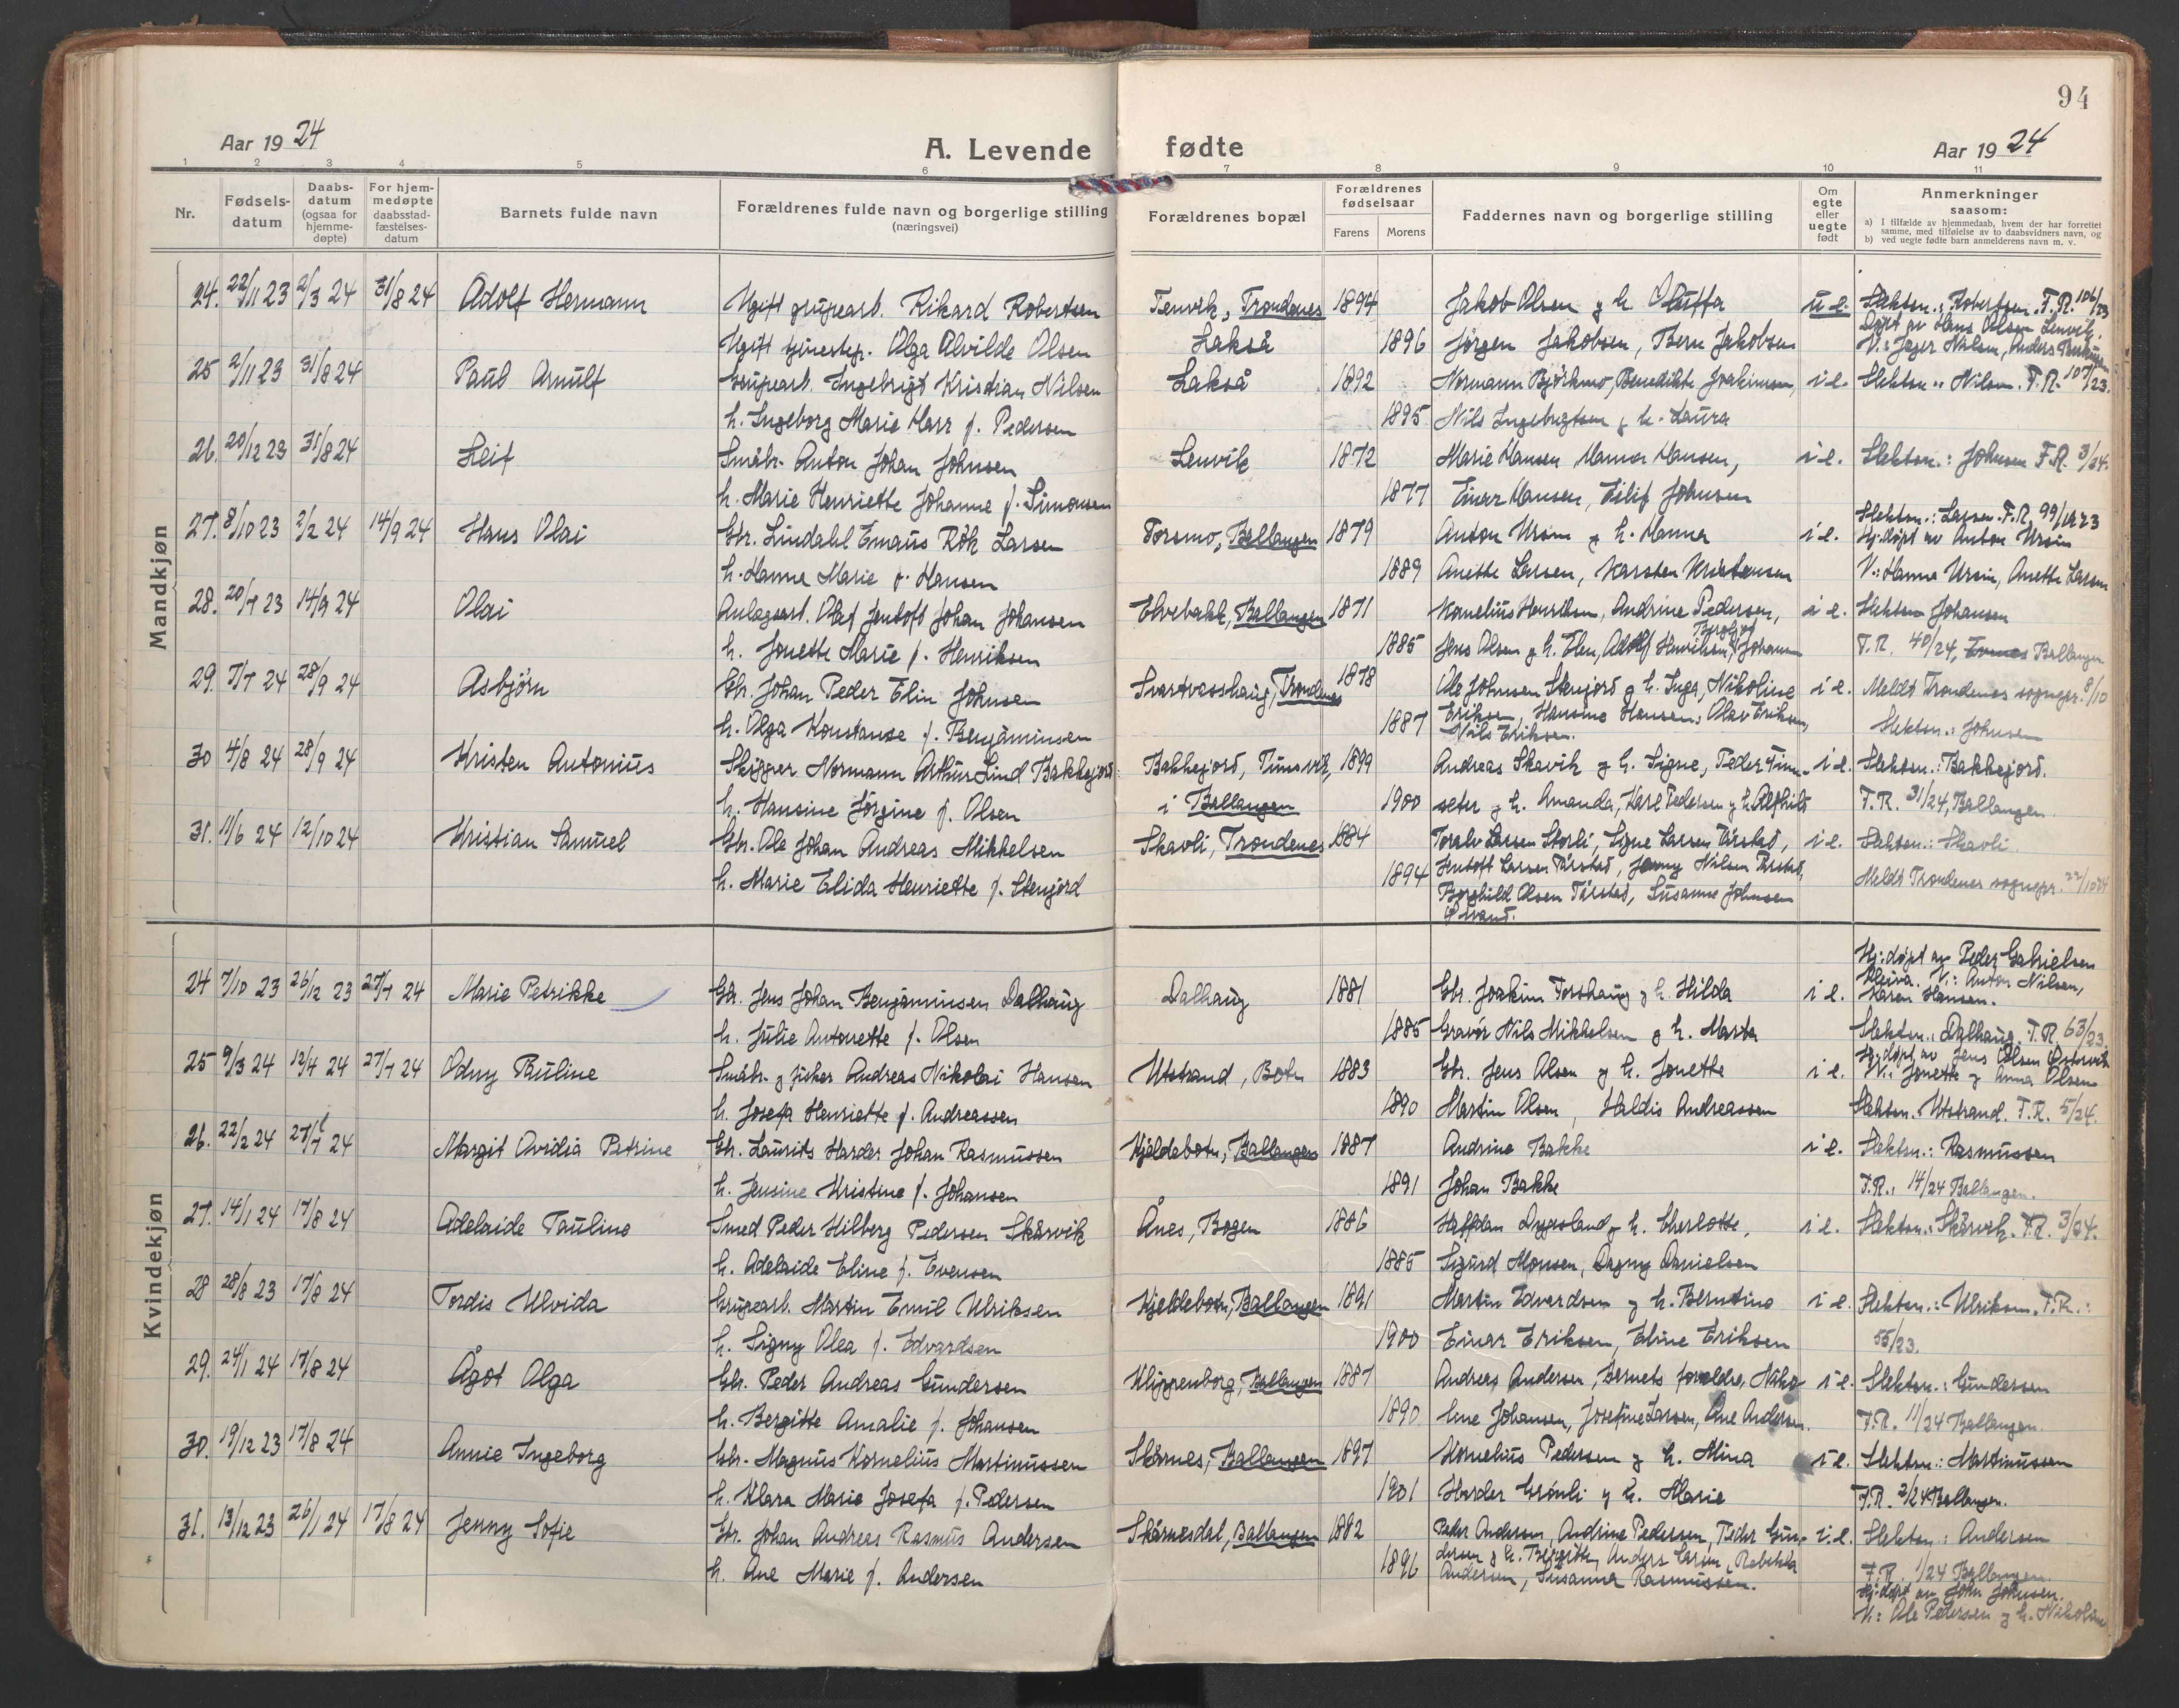 94
Aar 1924
A. Levende fødte
Aar 1924
1 2 3 4 5 6 7 8 9 10 11
Nr.
Fødsels-
datum
Daabs-
datum
(ogsaa for
hjemme-
døpte)
For hjem-
medøpte
daabsstad-
fæstelses-
datum
Barnets fulde navn
Forældrenes fulde navn og borgerlige stilling
(næringsvei)
Forældrenes bopæl
Forældrenes
fødselsaar
Farens Morens
Faddernes navn og borgerlige stilling
Om
egte
eller
uegte
født
Anmerkninger
saasom:
a) I tilfælde av hjemmedaab, hvem der har forrettet
samme, med tilføielse av to daabsvidners navn, og
b) ved uegte fødte barn anmelderens navn m. v.
Mandkjøn
24. 22/11 23 2/3 24 31/8 24 Adolf Hermann Ugift grupearb. Rikard Robertsen Tenvik, Trondenes 1894 Jakob Olsen g h. u e. Slektsn.: Robertsen. F.R. 106/23
Døpt av Hans Olsen Lenvik.
Ugift tjenestep. Olga Alvilde Olsen Lakså 1896 Jørgen Jakobsen, Bern Jakobsen V.: Jager Nilsen, Anders
25 2/11 23 31/8 24 Paul Arnulf Grupearb. Ingebrigt Kristian Nilsen Lakså 1892 Normann Bjørkmo, Benedikte Joakimsen, i e. Slektsn.: Nilsen. F.R. 107/23.
h. Ingeborg Marie Marr f. Pedersen 1895 Nils Ingebrigtsen g h. Laura
26. 20/12 23 31/8 24 Leif Småbr. Anton Johan Johnsen Lenvik 1872 Marie Hansen Hanna Hansen, i e. Slektsn.: Johnsen F.R. 3/24.
h. Marie Henriette Johanne f. Simonsen 1877 Einar Hansen, Eilif Johnsen
27. 8/10 23 2/2 24 14/9 24 Hans Olai Gbr. Lindahl Emaus Rök Larsen Forsmo, Ballangen 1879 Anton Ursin g h. Hanna i e. Slektsn.: Larsen. F.R. 99/1923
Hj.døpt av Anton Ursin
h. Hanna Marie f. Hansen 1889 Anette Larsen, Karsten Kristensen V.: Hanna Ursin, Anette Larsen
28. 20/7 23 14/9 24 Olai Anlægsarb. Olaf Jentoft Johan Johansen Elvebakk, Ballangen 1871 Kornelius Henriksen, Andrine Pedersen, i e. Slektsn Johansen
h. Jonette Marie f. Henriksen 1885 Jens Olsen g h. Elen, Adolf Henriksen, Johansen F.R. 40/24, Ballangen
29. 7/7 24 28/9 24 Asbjørn Gbr. Johan Peder Elin Johnsen Svartvasshaug, Trondenes 1878 Ole Johnsen Stenjord g h. Inga, Nikoline i e. Meldt Trondenes sognepr. 8/10
h. Olga Konstanse f. Benjaminsen 1887 Eriksen, Hansine Hansen, Olav Eriksen, Slektsn.: Johnsen
Nils Eriksen.
30 4/8 24 28/9 24 Kristen Antonius Skipper Normann Arthur Lind Bakkejord Bakkejord, Tunsvik, 1899 Andreas Skavik g h. Signe, Peder Finn- i e. Slektsn.: Bakkejord.
h. Hansine Jørgine f. Olsen i Ballangen 1900 seter g h. Amanda, Karl Pedersen g h. Alfhild F.R. 31/24, Ballangen.
31. 11/6 24 12/10 24 Kristian Samuel Gbr. Ole Johan Andreas Mikkelsen Skavli, Trondenes 1884 Toralv Larsen Storli, Signe Larsen Tårstad, i e. Slektsn.: Skavli
h. Marie Elida Henriette f. Stenjord 1894 Jentoft Larsen Tårstad, Jenny Nilsen Tårstad, Meldt Trondenes sognepr. 22/10 24
Borghild Olsen Tårstad, Susanne Johnsen

Kvindekjøn
24 7/10 23 26/12 23 27/7 24 Marie Petrikke Gbr. Jens Johan Benjaminsen Dalhaug Dalhaug 1881 Gbr. Joakim Forshaug g h. Hilda i e. Hj.døpt av Peder Gabrielsen
V.: Anton Nilsen,
Karen Hansen.
h. Julie Antonette f. Olsen 1885 Gravör Nils Mikkelsen g h. Marta Slektsn.: Dalhaug. F.R. 63/23.
25 9/3 24 12/4 24 27/7 24 Odny Pauline Småbr. g fisker Andreas Nikolai Hansen Utstrand, Botn 1883 Gbr. Jens Olsen g h. Jonette i e. Hj.døpt av Jens Olsen
V.: Jonette g Anna Olsen
h. Josefa Henriette f. Andreassen 1890 Martin Olsen, Haldis Andreassen Slektsn. Utstrand. F.R. 5/24.
26. 22/2 24 27/7 24 Margit Ovidia Petrine Gbr. Laurits Harder Johan Rasmussen Kjeldebotn, Ballangen 1887 Andrine Bakke i e. Slektsn.: Rasmussen
h. Jensine Kristine f. Johansen 1891 Johan Bakke F.R.: 14/24 Ballangen.
27. 14/1 24 17/8 24 Adelaide Pauline Smed Peder Hilberg Pedersen Skårvik Ånes, Bogen 1886 Halfdan h. Charlotte, i e. Slektsn.: Skårvik. F.R. 3/24.
h. Adelaide Eline f. Evensen 1885 Sigurd Monsen, Dagny Danielsen
28 28/8 23 17/8 24 Tordis Ulvida Grupearb. Martin Emil Ulriksen Kjeldebotn, Ballangen 1891 Martin Edvardsen g h. Berntine i e. Slektsn.: Ulriksen. F.R.:
h. Signy Olea f. Edvardsen 1900 Einar Eriksen, Eline Eriksen 55/23.
29. 24/1 24 17/8 24 Ågot Olga Gbr. Peder Andreas Gundersen Klippenborg, Ballangen 1887 Andreas Andersen, Barnets foreldre, Niko- i e. Slektsn.: Gundersen
h. Bergitte Amalie f. Johansen 1890 line Johansen, Josefine Larsen, Ane Andersen. F.R. 11/24 Ballangen.
30. 19/12 23 17/8 24 Annie Ingeborg Gbr. Magnus Kornelius Martinussen Skårnes, Ballangen 1897 Kornelius Pedersen g h. Mina i e. Slektsn.: Martinussen
h. Klara Marie Josefa f. Pedersen 1901 Harder Grønli g h. Marie F.R. 2/24 Ballangen.
31. 13/12 23 26/1 24 17/8 24 Jenny Sofie Gbr. Johan Andreas Rasmus Andersen Skårnesdal, Ballangen 1882 Peder Andersen, Andrine Pedersen, Peder Gun- i e. Slektsn: Andersen
h. Ane Marie f. Andersen 1896 dersen g h. Bergitte, Anders Larsen, Rebekka F.R. 1/24 Ballangen.
Andersen, Susanna Rasmussen. Hj.døpt av John Johnsen.
V.: Ole Pedersen g h. Nikoline